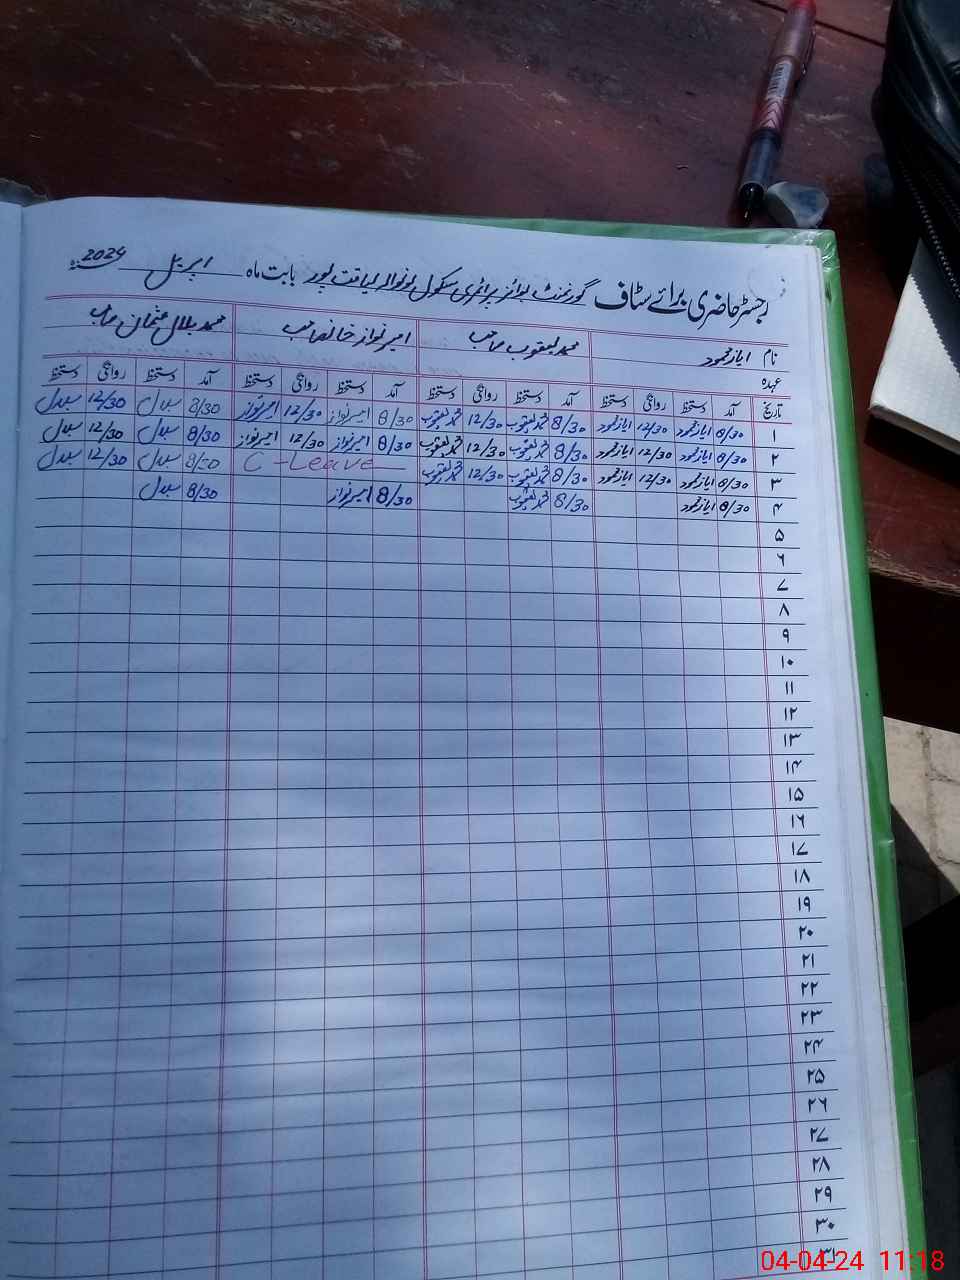 رجسٹر حاضری برائے سٹاف گورنمنٹ بوائز پرائمری سکول نونوالہ لیاقت پور بابت ماہ اپریل 2024ء
نام ایاز محمود محمد یعقوب صاحب امیر نواز خان صاحب محمد بلال عثمان صاحب
عہدہ
تاریخ آمد دستخط روانگی دستخط آمد دستخط روانگی دستخط آمد دستخط روانگی دستخط آمد دستخط روانگی دستخط
۱ 8/30 ایاز محمود 12/30 ایاز محمود 8/30 محمد یعقوب 12/30 محمد یعقوب 8/30 امیر نواز 12/30 امیر نواز 8/30 بلال 12/30 بلال
۲ 8/30 ایاز محمود 12/30 ایاز محمود 8/30 محمد یعقوب 12/30 محمد یعقوب 8/30 امیر نواز 12/30 امیر نواز 8/30 بلال 12/30 بلال
۳ 8/30 ایاز محمود 12/30 ایاز محمود 8/30 محمد یعقوب 12/30 محمد یعقوب C-Leave 8/30 بلال 12/30 بلال
۴ 8/30 ایاز محمود 8/30 محمد یعقوب 8/30 امیر نواز 8/30 بلال
۵
۶
۷
۸
۹
۱۰
۱۱
۱۲
۱۳
۱۴
۱۵
۱۶
۱۷
۱۸
۱۹
۲۰
۲۱
۲۲
۲۳
۲۴
۲۵
۲۶
۲۷
۲۸
۲۹
۳۰
۳۱
04-04-24 11:18